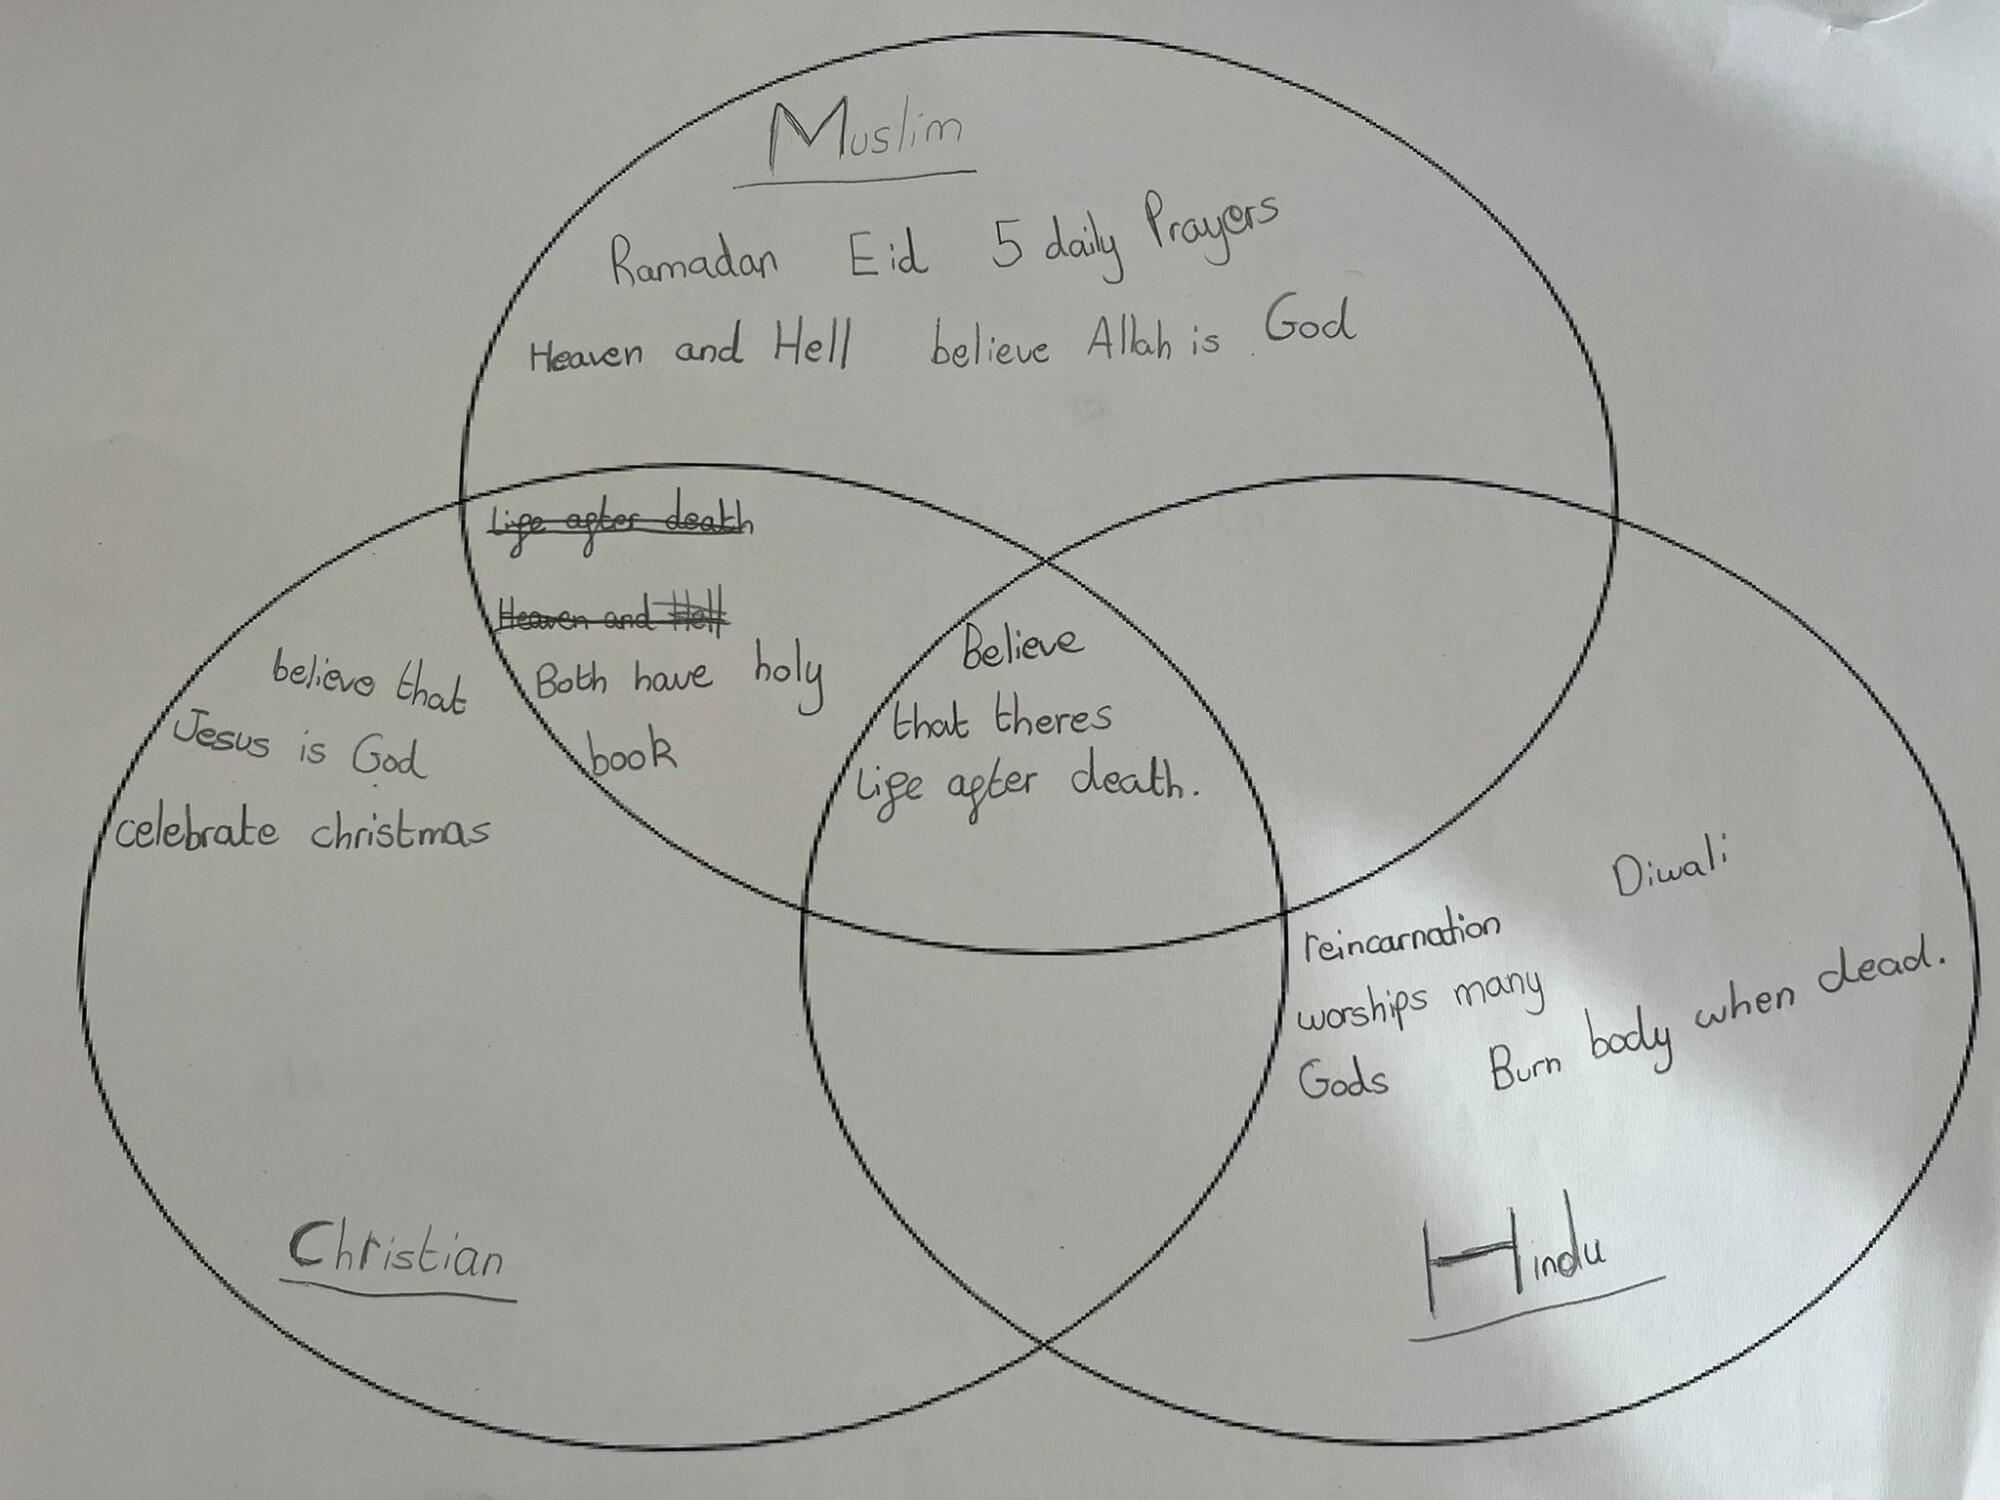 Muslim
Ramadan Eid 5 daily Prayers
Heaven and Hell believe Allah is God
Life after death
Heaven and Hell
Both have holy
book
believe that
Jesus is God
celebrate christmas
Believe
that theres
Life after death.
Diwali
reincarnation
worships many
Gods
Burn body when dead.
Christian
Hindu